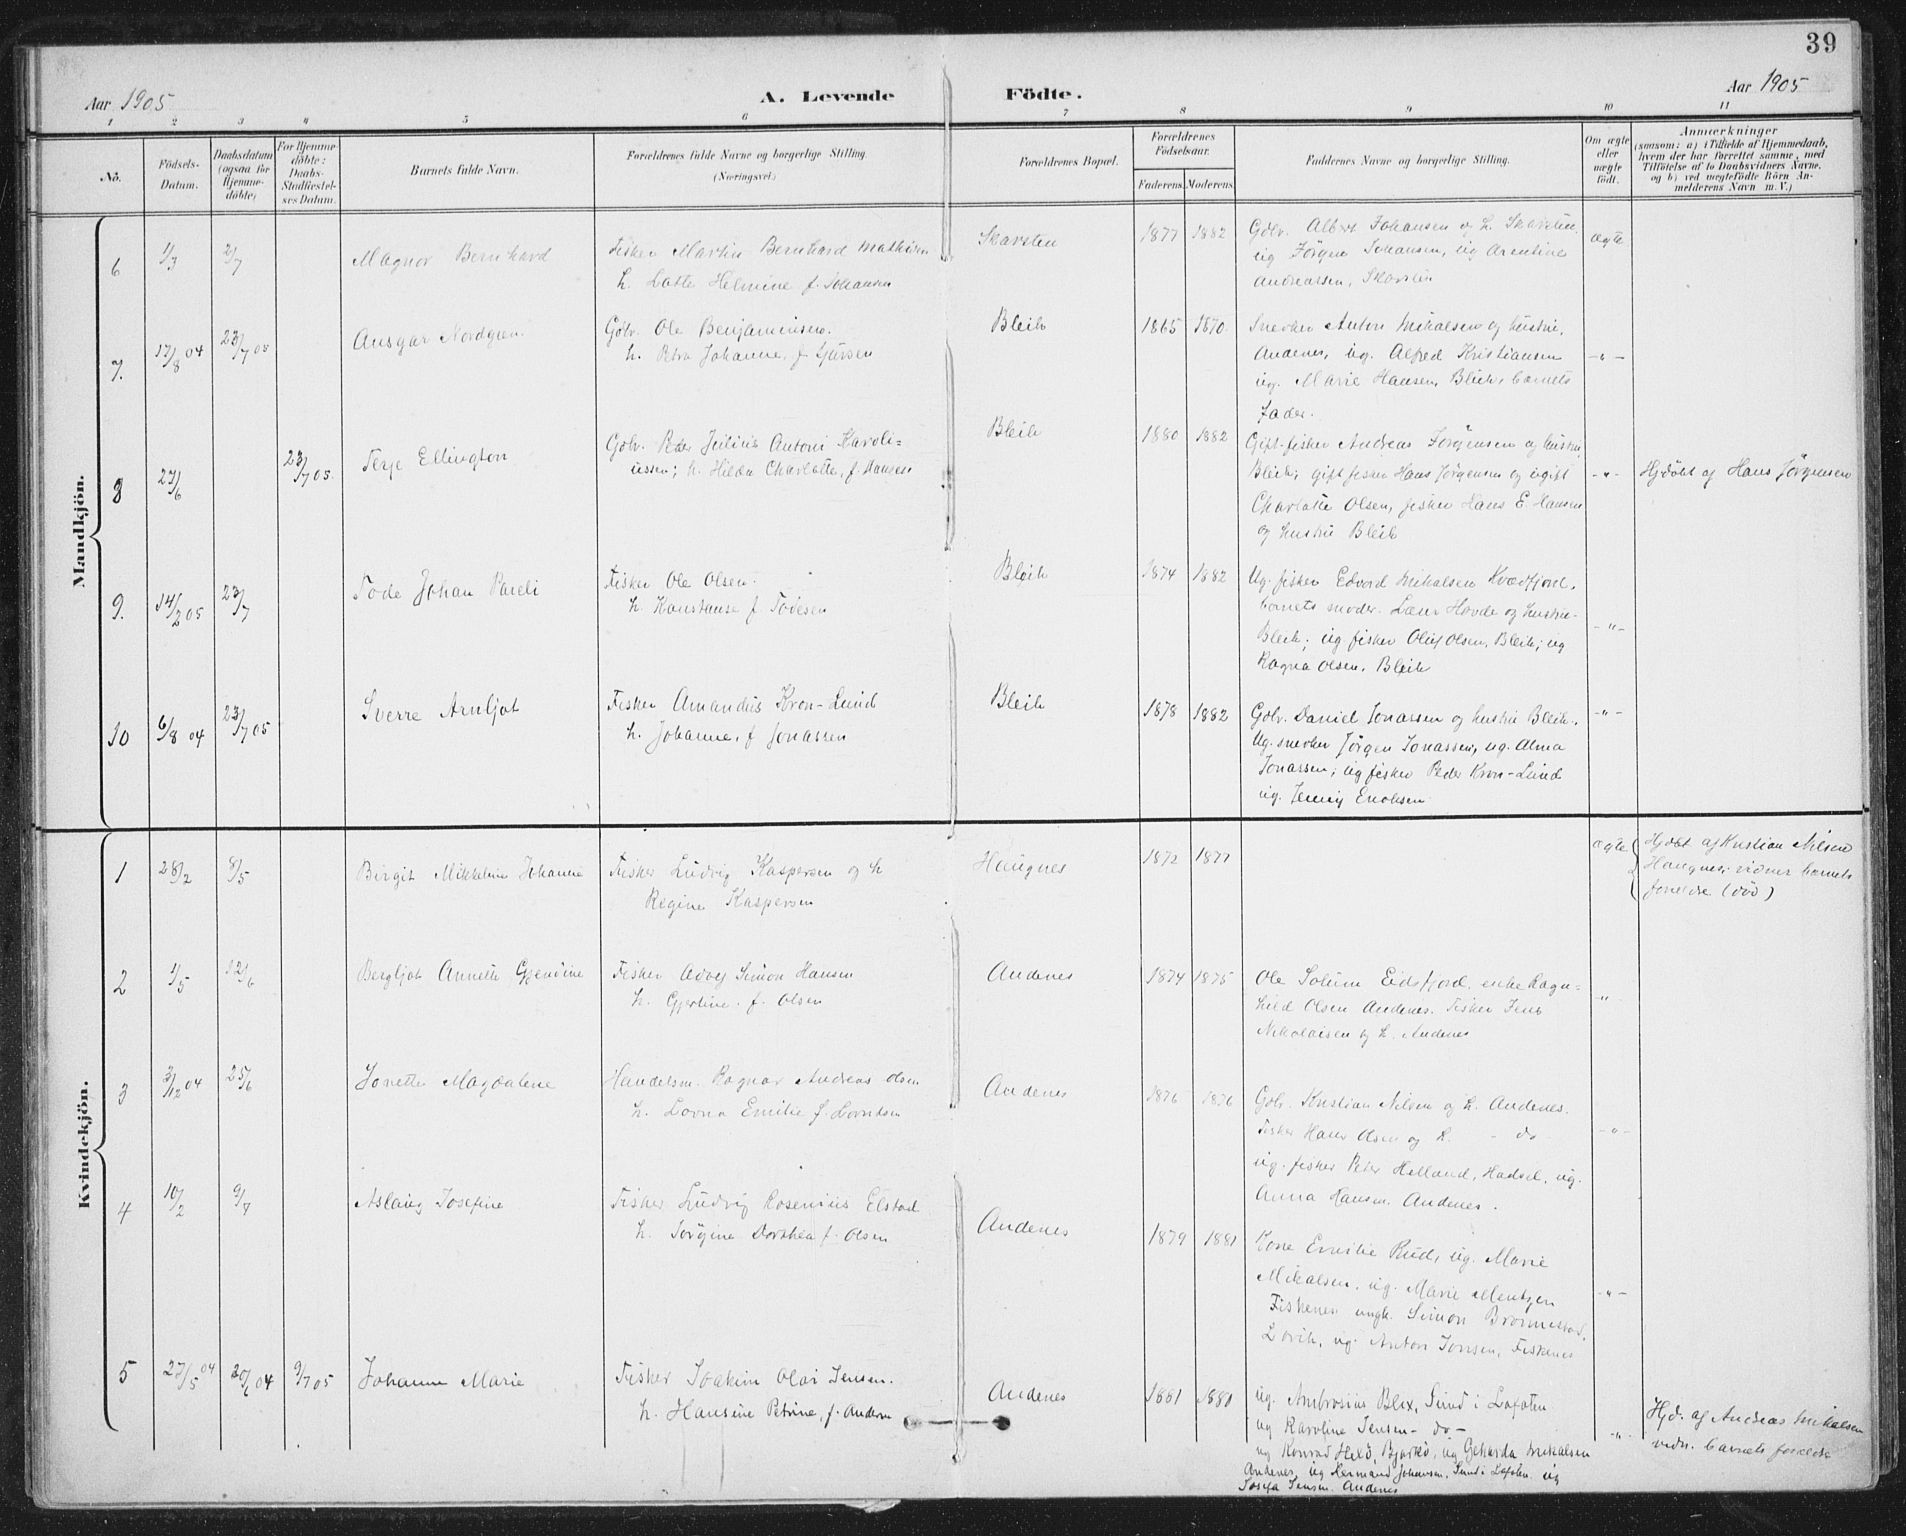 39
Aar 1905
A. Levende Födte.
Aar 1905
1 2 3 4 5 6 7 8 9 10 11
No.
Födsels-
Datum.
Daabsdatum
(ogsaa for
Hjemme-
döbte)
For Hjemme-
döbte:
Daabs-
Stadfæstel-
ses Datum.
Barnets fulde Navn.
Forældrenes fulde Navne og borgerlige Stilling.
(Næringsvei.)
Forældrenes Bopæl.
Forældrenes
Födselsaar.
Faderens. Moderens.
Faddernes Navne og borgerlige Stilling.
Om ægte
eller
uægte
født.
Anmærkninger
(saasom: a) i Tilfælde af Hjemmedaab,
hvem der har forrettet samme, med
Tilföielse af to Daabsvidners Navne,
og b) ved uægtefödte Börn An-
melderens Navn m. V.)
Mandkjön.
6 1/3 2/7 Magnor Bernhard
Fisker Martin Bernhard Mathisen
h. Lotte Helmine f. Johansen
Skarsten 1877 1882
Gbr. Albert Johansen og h. Skarsten,
ug Jørgen Johansen, ug Arentine
Andreassen, Skarsten
ægte
7. 17/8 04 23/7 05 Ansgar Nordgren
Gbr. Ole Benjaminsen.
h. Petra Johanne, f. Sjursen
Bleik 1865 1870
Snevker Anton Mikalsen og hustru,
Andenes, ug. Alfred Kristiansen
ug. Marie Hansen, Bleik, barnets
fader.
-"-
8 27/6 23/7 05. Terje Ellington
Gbr. Peder Julius Antoni Karoli-
ussen; h. Hilda Charlotte, f. Hansen
Bleik 1880 1882
Gift fisker Andreas Jørgensen og hustru
Bleik; gift fisker Hans Jørgensen og ugift
Charlotte Olsen, fisker Hans E. Hansen
og hustru Bleik
-"-
Hjdøbt af Hans Jørgensen
9. 14/2 05 23/7 Tode Johan Pareli
Fisker Ole Olsen.
h. Konstanse f. Todesen
Bleik 1874 1882
Ug. fisker Edvard Mikalsen Kvædfjord.
barnets moder. Lærer Hovde og hustru
Bleik; ug fisker Oluf Olsen, Bleik; ug
Ragna Olsen, Bleik
-"-
10 6/8 04 23/7 05 Sverre Arnljot
Fisker Amandus Kron-Lund
h. Johanne, f Jonassen
Bleik 1878 1882
Gbr. Daniel Jonassen og hustru Bleik.
Ug. snevker Jørgen Jonassen, ug. Alma
Jonassen; ug fisker Peder Kron-Lund
ug. Jenny Enoksen
-"-
Kvindekjön.
1 28/2 8/5 Birgit Mikkeline Johanne
Fisker Ludvig Kaspersen og h
Regine Kaspersen
Haugnes 1872 1877
ægte
Hjdøbt af Kristian Nilsen
Haugnes; vidner barnets
foreldre (død)
2 1/5 12/6 Bergljot Annette Gjendine
Fisker Simon Hansen
h. Gjertine. f. Olsen
Andenes 1874 1875
Ole Solum Eidsfjord, enke Ragn-
hild Olsen Andenes. Fisker Jens
Nikolaisen og h. Andenes
-"-
3 3/12 04 25/6 Jonette Magdalene
Handelsm. Ragnar Andreas Olsen
h. Lovna Emilie f.
Andenes 1876 1876
Gbr. Kristian Nilsen og h. Andenes.
Fisker Hans Olsen og h. - do
ug. fisker Peter Helland, Hadsel, ug.
Anna Hansen. Andenes.
-"-
4 10/2 9/7 Aslaug Josefine
Fisker Ludvig Rosenius Elstad
h. Jørgine Dorthea f. Olsen
Andenes 1879 1881
Kone Emilie Rud, ug. Marie
Mikalsen, ug. Marie Mentzen
Fiskenes ungk. Simon Brønnestad,
Lovik, ug. Anton Jonsen, Fiskenes
-"-
5 27/5 04 20/6 04 9/7 05 Johanne Marie
Fisker Joakim Olai Jensen.
h. Hansine Petrine, f. Andersen
Andenes 1881 1880
ug. Ambrosius Blix, Sund i Lofoten
ug Karoline Jensen - do -
ug Konrad Held, Bjarkø, ug Geharda Mikalsen
Andenes, ug Hermand Johansen, Sund i Lofoten ug
Josefa Jensen. Andenes
-"-
Hjd. af Andreas Mikalsen
vidn. barnets foreldre